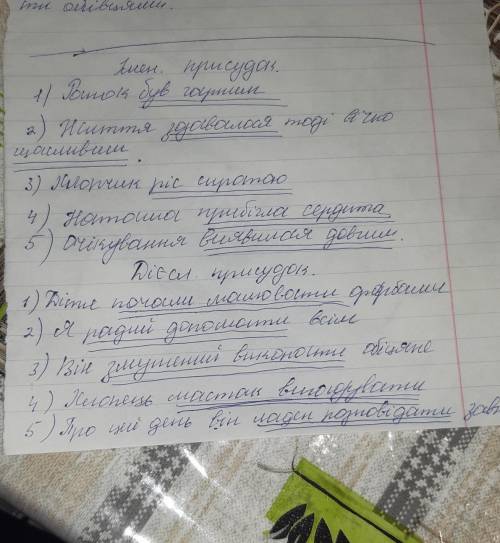 ти обіцянти.
Імен. присудок.
1) Ранок був гарним
2) Життя здавалося тоді вічно
щасливим.
3) Хлопчик ріс сиротою
4) Наташа прибігла сердита
5) Очікування виявилася довгим.
Дієсл. присудок.
1) Діти почали малювати фарбами
2) Я радий допомогти всім
3) Він змушений виконати обіцяне
4) Хлопець мастак вигадувати
5) Про цей день він ладен розповідати